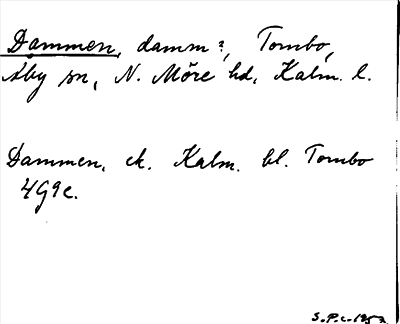 Dammen, damm?, Tombo,
Åby sn, N. Möre hd, Kalm. l.
Dammen, ek. Kalm. bl. Tombo
4G9c.